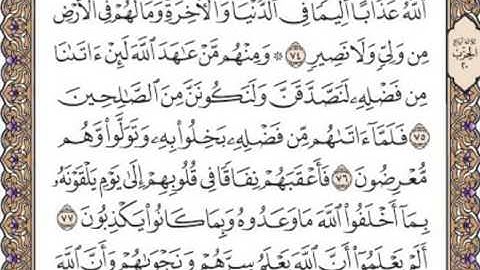 ٱللَّهُ عَذَابًا أَلِيمًا فِى ٱلدُّنْيَا وَٱلْأَخِرَةِ وَمَا لَهُمْ فِى ٱلْأَرْضِ
مِن وَلِىٍّ وَلَا نَصِيرٍ ٧٤ ۞ وَمِنْهُم مَّنْ عَٰهَدَ ٱللَّهَ لَئِنْ ءَاتَىٰنَا
مِن فَضْلِهِۦ لَنَصَّدَّقَنَّ وَلَنَكُونَنَّ مِنَ ٱلصَّٰلِحِينَ
٧٥ فَلَمَّآ ءَاتَىٰهُم مِّن فَضْلِهِۦ بَخِلُوا۟ بِهِۦ وَتَوَلَّوا۟ وَّهُم
مُّعْرِضُونَ ٧٦ فَأَعْقَبَهُمْ نِفَاقًا فِى قُلُوبِهِمْ إِلَىٰ يَوْمِ يَلْقَوْنَهُۥ
بِمَآ أَخْلَفُوا۟ ٱللَّهَ مَا وَعَدُوهُ وَبِمَا كَانُوا۟ يَكْذِبُونَ ٧٧
أَلَمْ يَعْلَمُوٓا۟ أَنَّ ٱللَّهَ يَعْلَمُ سِرَّهُمْ وَنَجْوَىٰهُمْ وَأَنَّ ٱللَّهَ
الحزب
٢٠